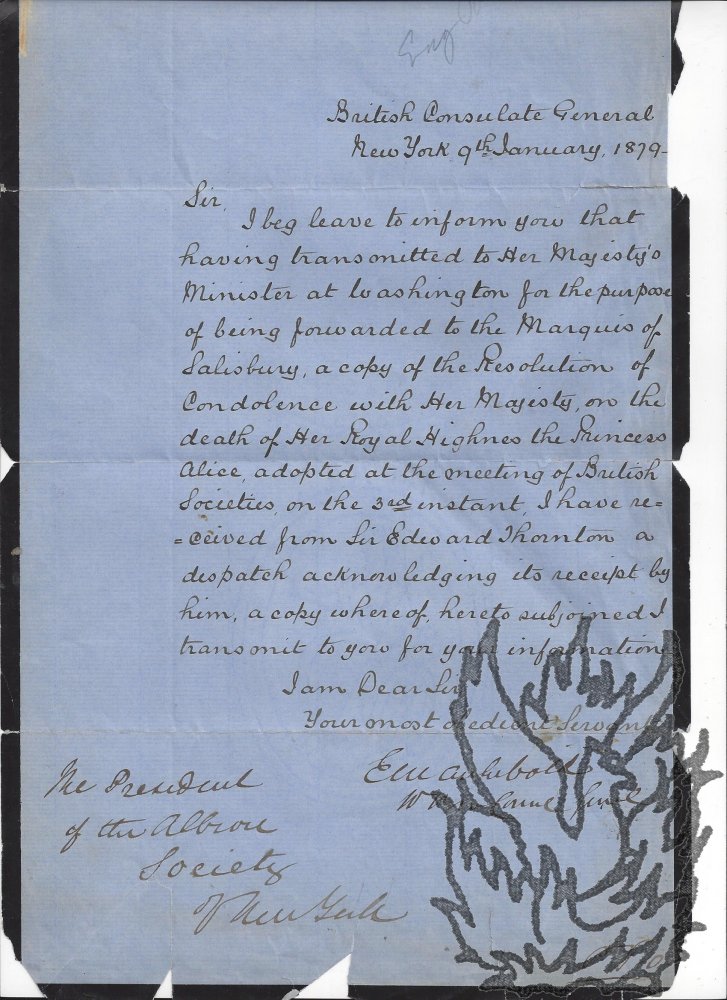 British Consulate General
New York 9th January, 1879-
Sir,
I beg leave to inform you that
having transmitted to Her Majesty's
Minister at Washington for the purpose
of being forwarded to the Marquis of
Salisbury, a copy of the Resolution of
Condolence with Her Majesty, on the
death of Her Royal Highnes the Princess
Alice, adopted at the meeting of British
Societies, on the 3rd instant, I have re=
=ceived from Sir Edward Thornton a
despatch acknowledging its receipt by
him, a copy whereof, hereto subjoined I
transmit to you for your information
I am Dear Sir
Your most obedient Servant
E M Archibald
The President
of the Albion
Society
of New York